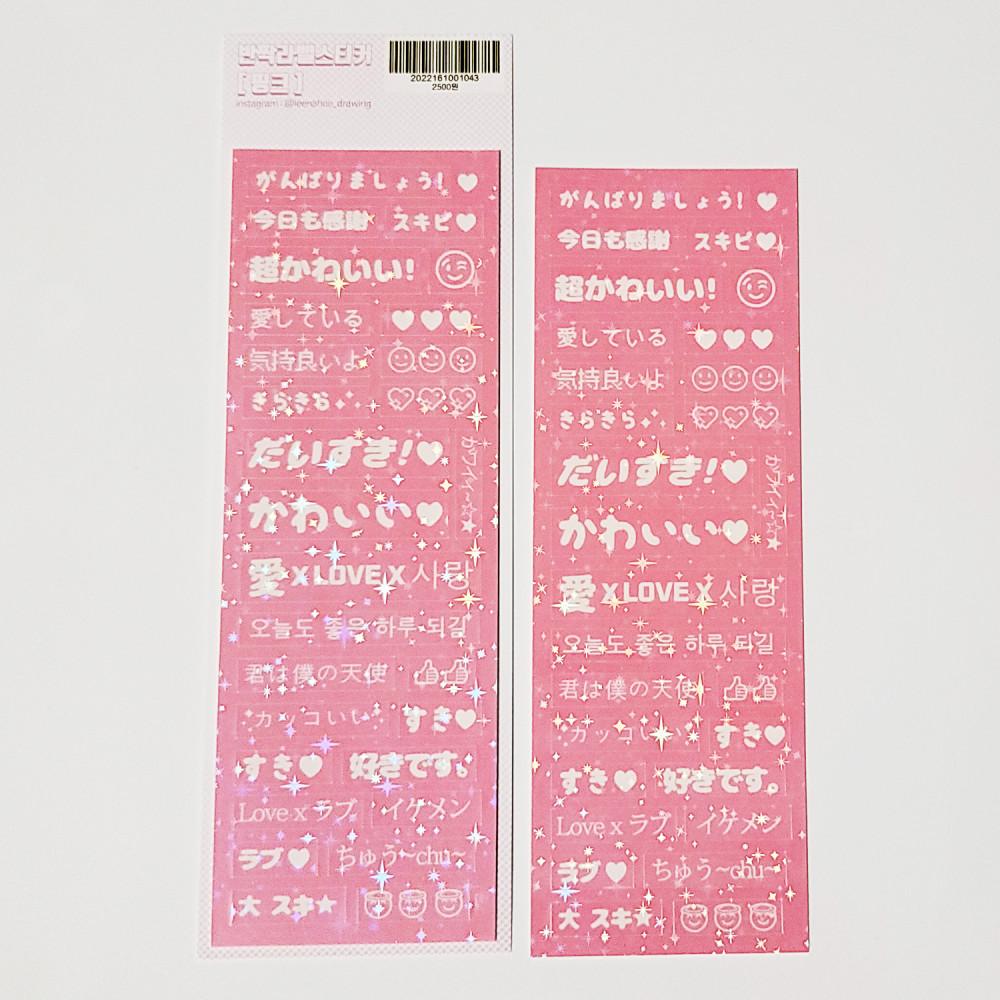 반짝라벨스티커
[핑크]
instagram : @leenahee_drawing
2022161001043
2500원
がんばりましょう!
今日も感謝 スキピ
超かわいい!
愛している
気持良いよ
きらきら
だいすき!
カワイイ〜☆★
かわいい
愛 X LOVE X 사랑
오늘도 좋은 하루 되길
君は僕の天使
カッコいい すき
すき 好きです。
Love x ラブ イケメン
ラブ ちゅう~chu~
大 スキ★
がんばりましょう!
今日も感謝 スキピ
超かわいい!
愛している
気持良いよ
きらきら
だいすき!
カワイイ〜☆★
かわいい
愛 X LOVE X 사랑
오늘도 좋은 하루 되길
君は僕の天使
カッコいい すき
すき 好きです。
Love x ラブ イケメン
ラブ ちゅう~chu~
大 スキ★